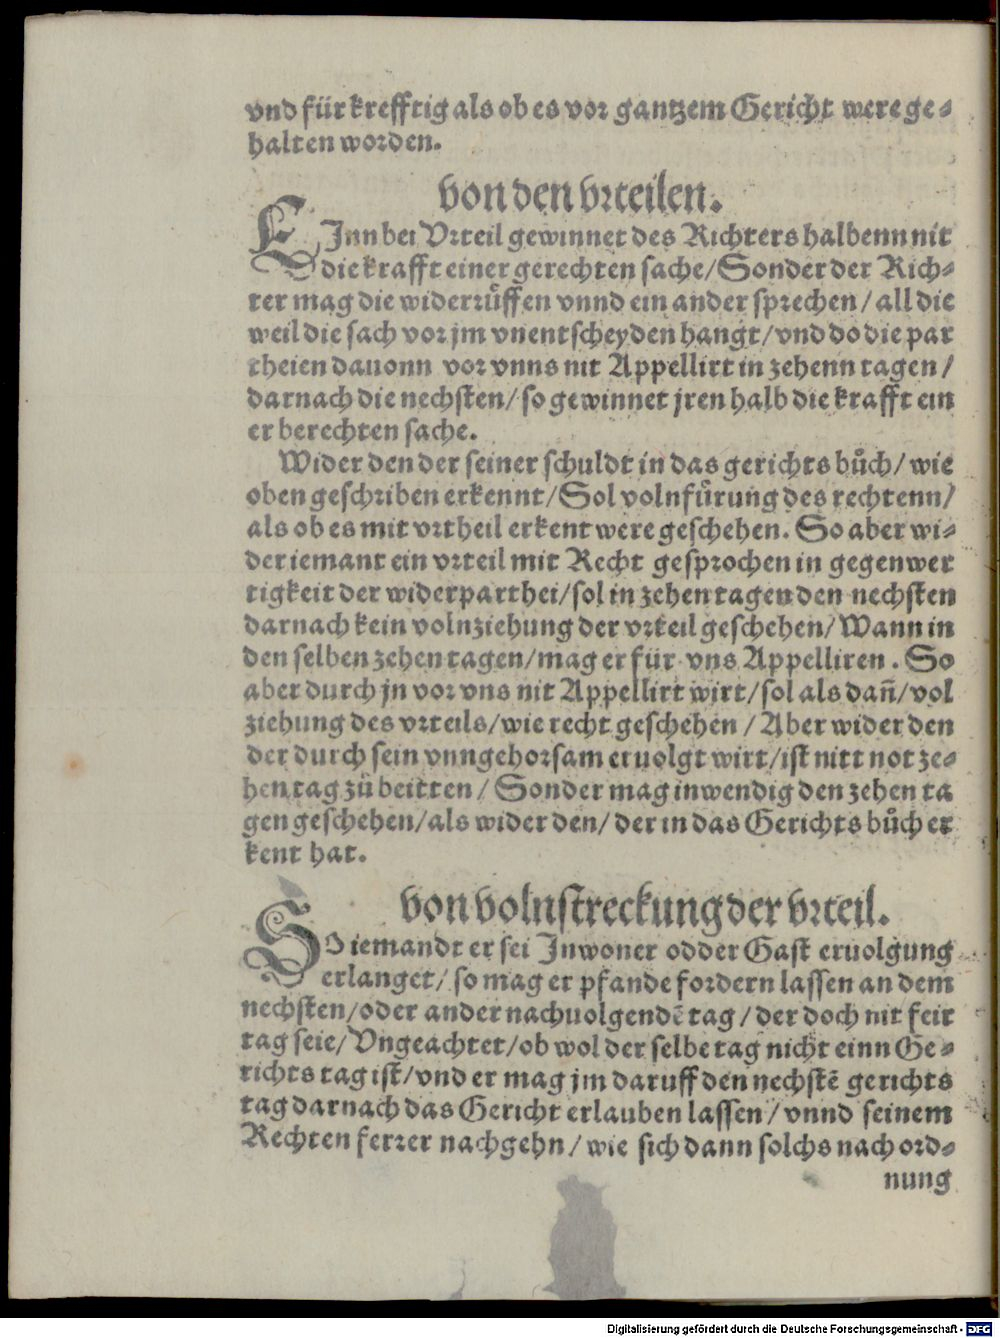 vnd für krefftig als ob es vor gantzem Gericht were ge-
halten worden.
von den vrteilen.
EInn bei Vrteil gewinnet des Richters halbenn nit
die krafft einer gerechten sache/ Sonder der Rich-
ter mag die widerrůffen vnnd ein ander sprechen/ all die
weil die sach vor jm vnentscheyden hangt/ vnd do die par
theien dauonn vor vnns nit Appellirt in zehenn tagen/
darnach die nechsten/ so gewinnet jren halb die krafft ein
er berechten sache.
Wider den der seiner schuldt in das gerichts bůch/ wie
oben geschriben erkennt/ Sol volnfürung des rechtenn/
als ob es mit vrtheil erkent were geschehen. So aber wi-
der iemant ein vrteil mit Recht gesprochen in gegenwer
tigkeit der widerparthei/ sol in zehen tagen den nechsten
darnach kein volnziehung der vrteil geschehen/ Wann in
den selben zehen tagen/ mag er für vns Appelliren. So
aber durch jn vor vns nit Appellirt wirt/ sol als dañ/ vol
ziehung des vrteils/ wie recht geschehen/ Aber wider den
der durch sein vnngehorsam eruolgt wirt/ ist nitt not ze-
hen tag zů beitten/ Sonder mag inwendig den zehen ta
gen geschehen/ als wider den/ der in das Gerichts bůch er
kent hat.
von volnstreckung der vrteil.
SO iemandt er sei Inwoner odder Gast eruolgung
erlanget/ so mag er pfande fordern lassen an dem
nechsten/ oder ander nachuolgendē tag/ der doch nit feir
tag seie/ Vngeachtet/ ob wol der selbe tag nicht einn Ge-
richts tag ist/ vnd er mag jm daruff den nechstē gerichts
tag darnach das Gericht erlauben lassen/ vnnd seinem
Rechten ferrer nachgehn/ wie sich dann solchs nach ord-
nung
Digitalisierung gefördert durch die Deutsche Forschungsgemeinschaft - DFG